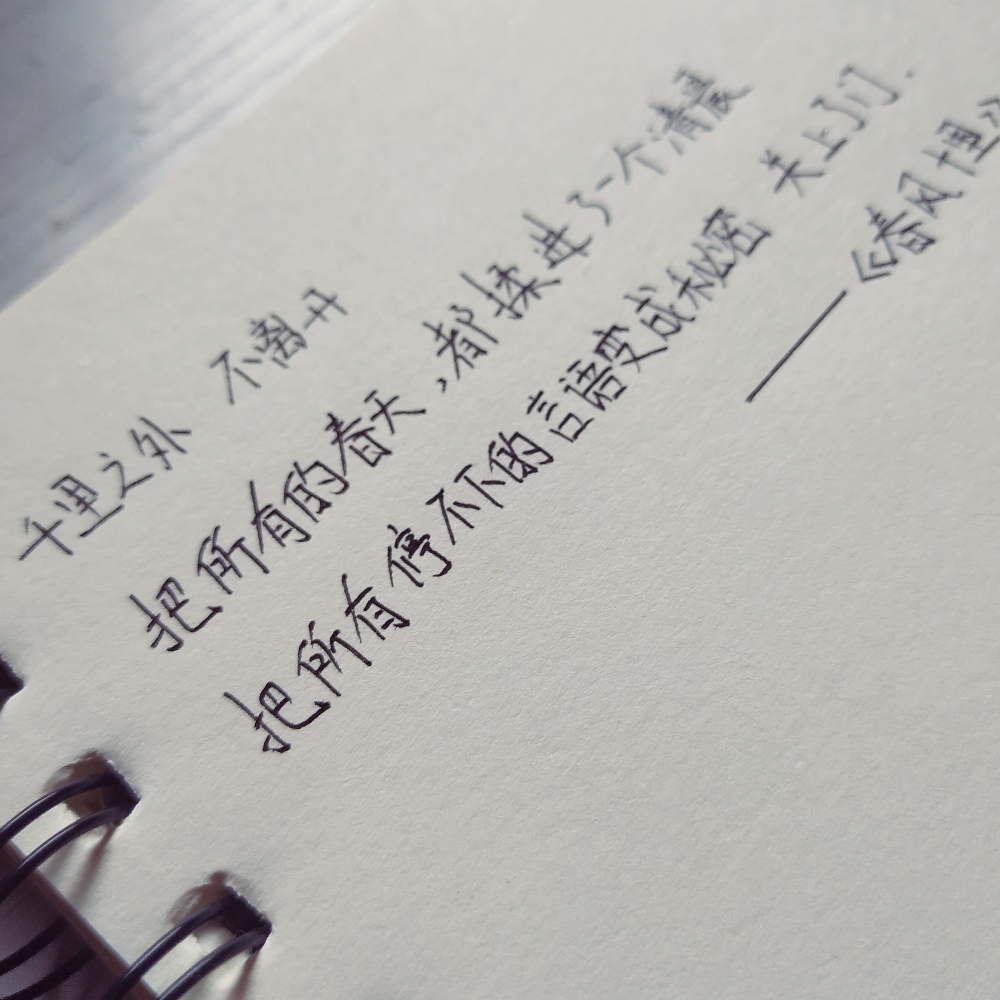 千里之外 不离开
把所有的春天,都揉进了一个清晨
把所有停不下的言语变成秘密 关上了门.
——《春风十里》